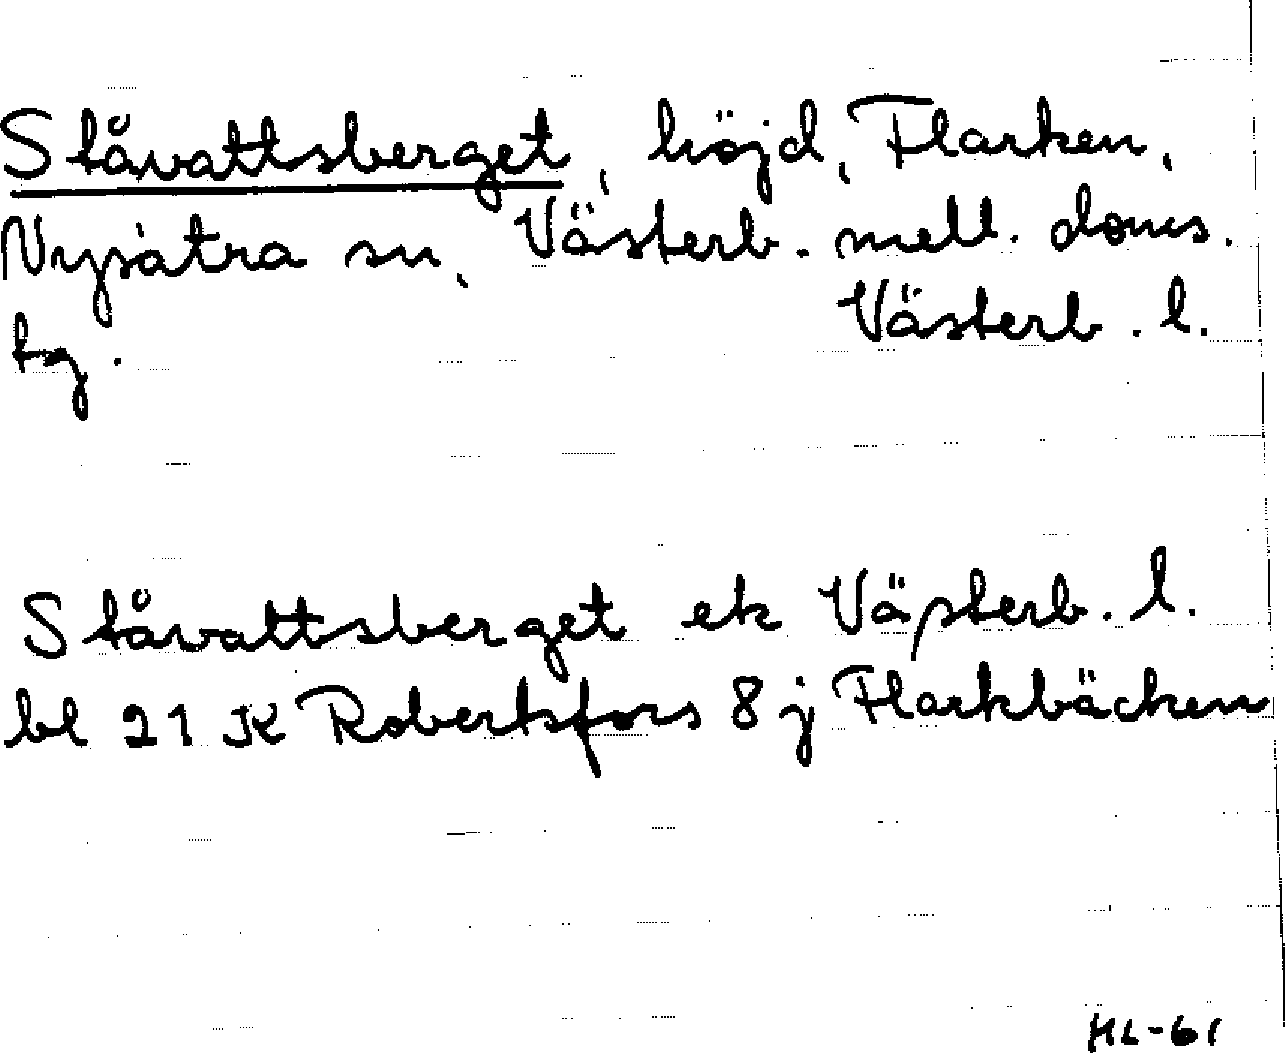 Ståvattsberget, höjd, Flarken,
Nysätra sn, Västerb. mell. doms.
Västerb. l.
tg.
Ståvattsberget ek Västerb. l.
bl 21 K Robertsfors 8 j Flarkbäcken
HL-61